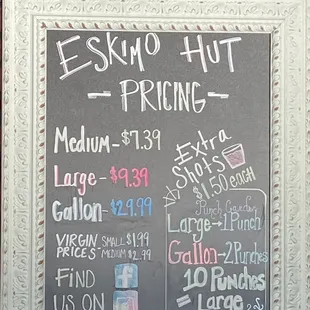 ESKIMO HUT
- PRICING -
Medium - $7.39
Large - $9.39
Gallon - $29.99
VIRGIN PRICES SMALL $1.99
MEDIUM $2.99
FIND
US ON
Extra
Shots
$1.50 each
Punch Cards
Large → 1 Punch
Gallon - 2 Punches
10 Punches
= Large